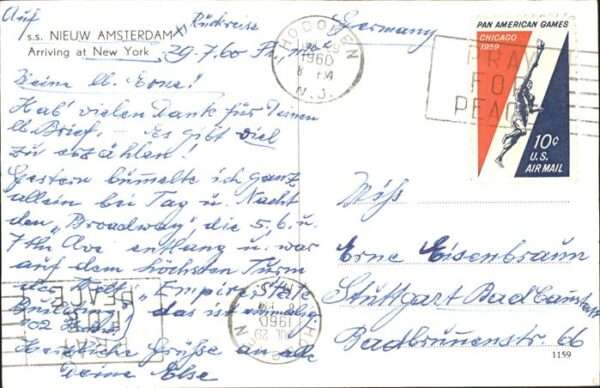 Auf Rückreise
s.s. NIEUW AMSTERDAM
Arriving at New York
29.7.60
Germany
HOBOKEN
1960
N.J.
PRAY
FOR
PEACE
PAN AMERICAN GAMES
CHICAGO
1959
10¢
U.S.
AIR MAIL
Meine lb. Erne!
Hab' vielen Dank für Deinen
lb. Brief. – Es gibt viel
zu erzählen!
Gestern bümelte ich ganz
allein bei Tag u. Nacht
den „Broadway" die 5, 6. u.
7th Ave entlang u. war
auf dem höchsten Turm
der Welt „Empire State
Building" das ist einmalig
102
Herzliche Grüße an alle
Deine Else
Miss
Erne Eisenbraun
Stuttgart Bad Cannstatt
Badbrunnenstr. 66
HOBOKEN
JUL 29
1960
N.J.
PRAY
FOR
PEACE
1159